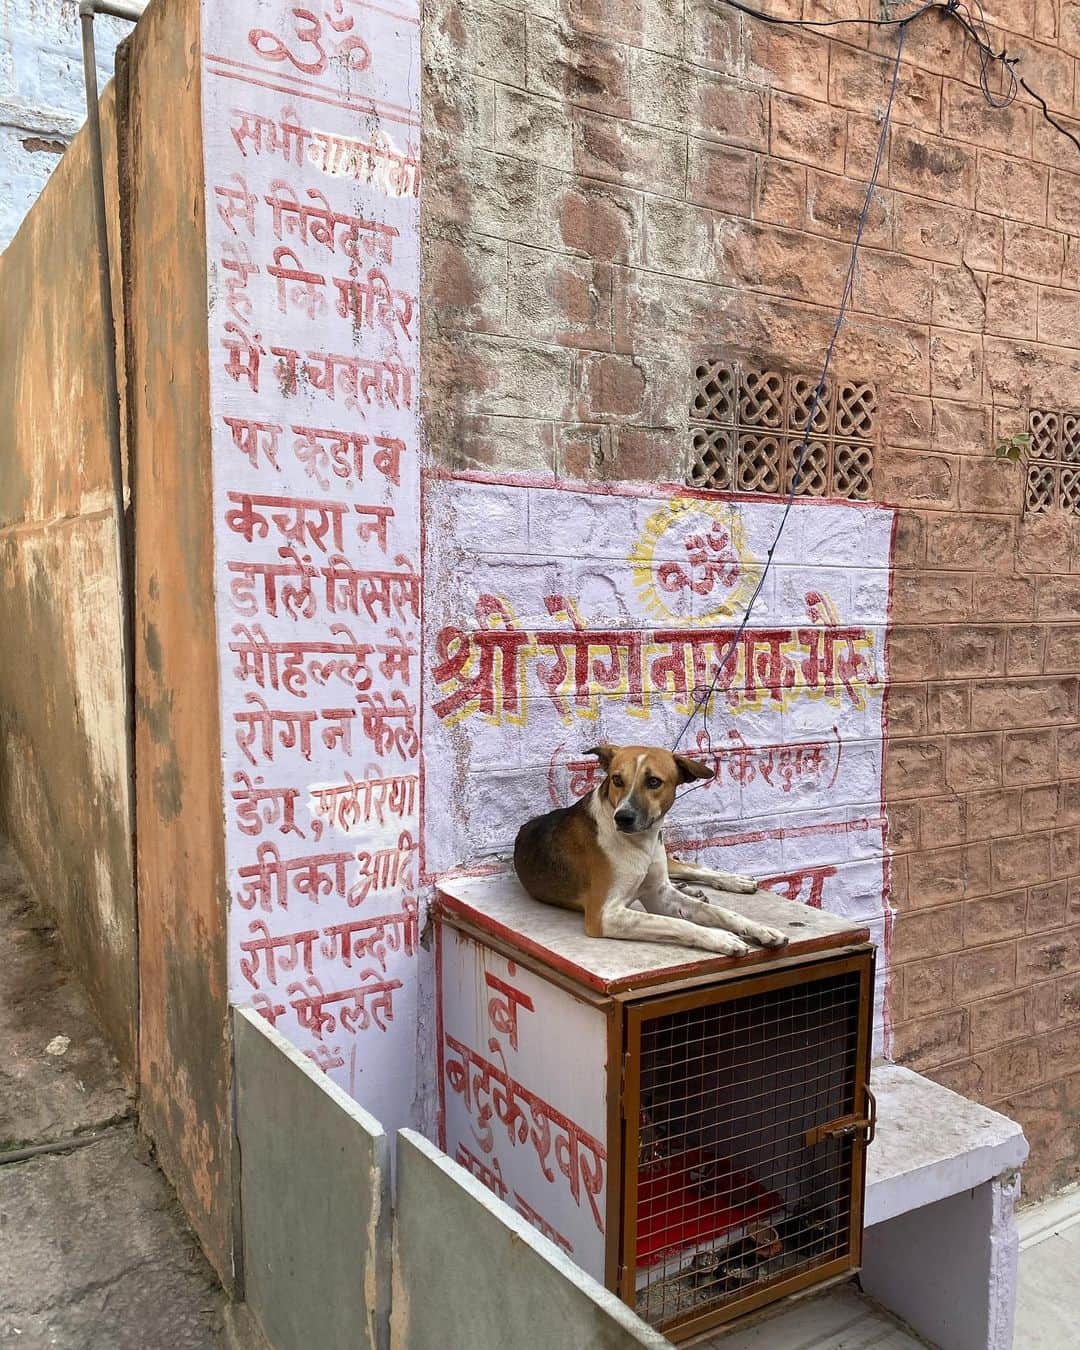 ॐ
सभी नागरिकों
से निवेदन
है कि मंदिर
में व चबूतरी
पर कूडा व
कचरा न
डालें जिससे
मौहल्ले में
रोग न फैले
डेंगू, मलेरिया
जीका आदि
रोग गन्दगी
से फैलते
हैं।
ॐ
श्री रोग नाशक भैरू
के रक्षक)
बं
बटुकेश्वर